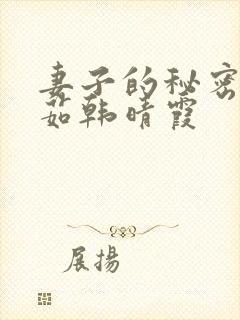 妻子的秘密
茹韩晴霞
展揚